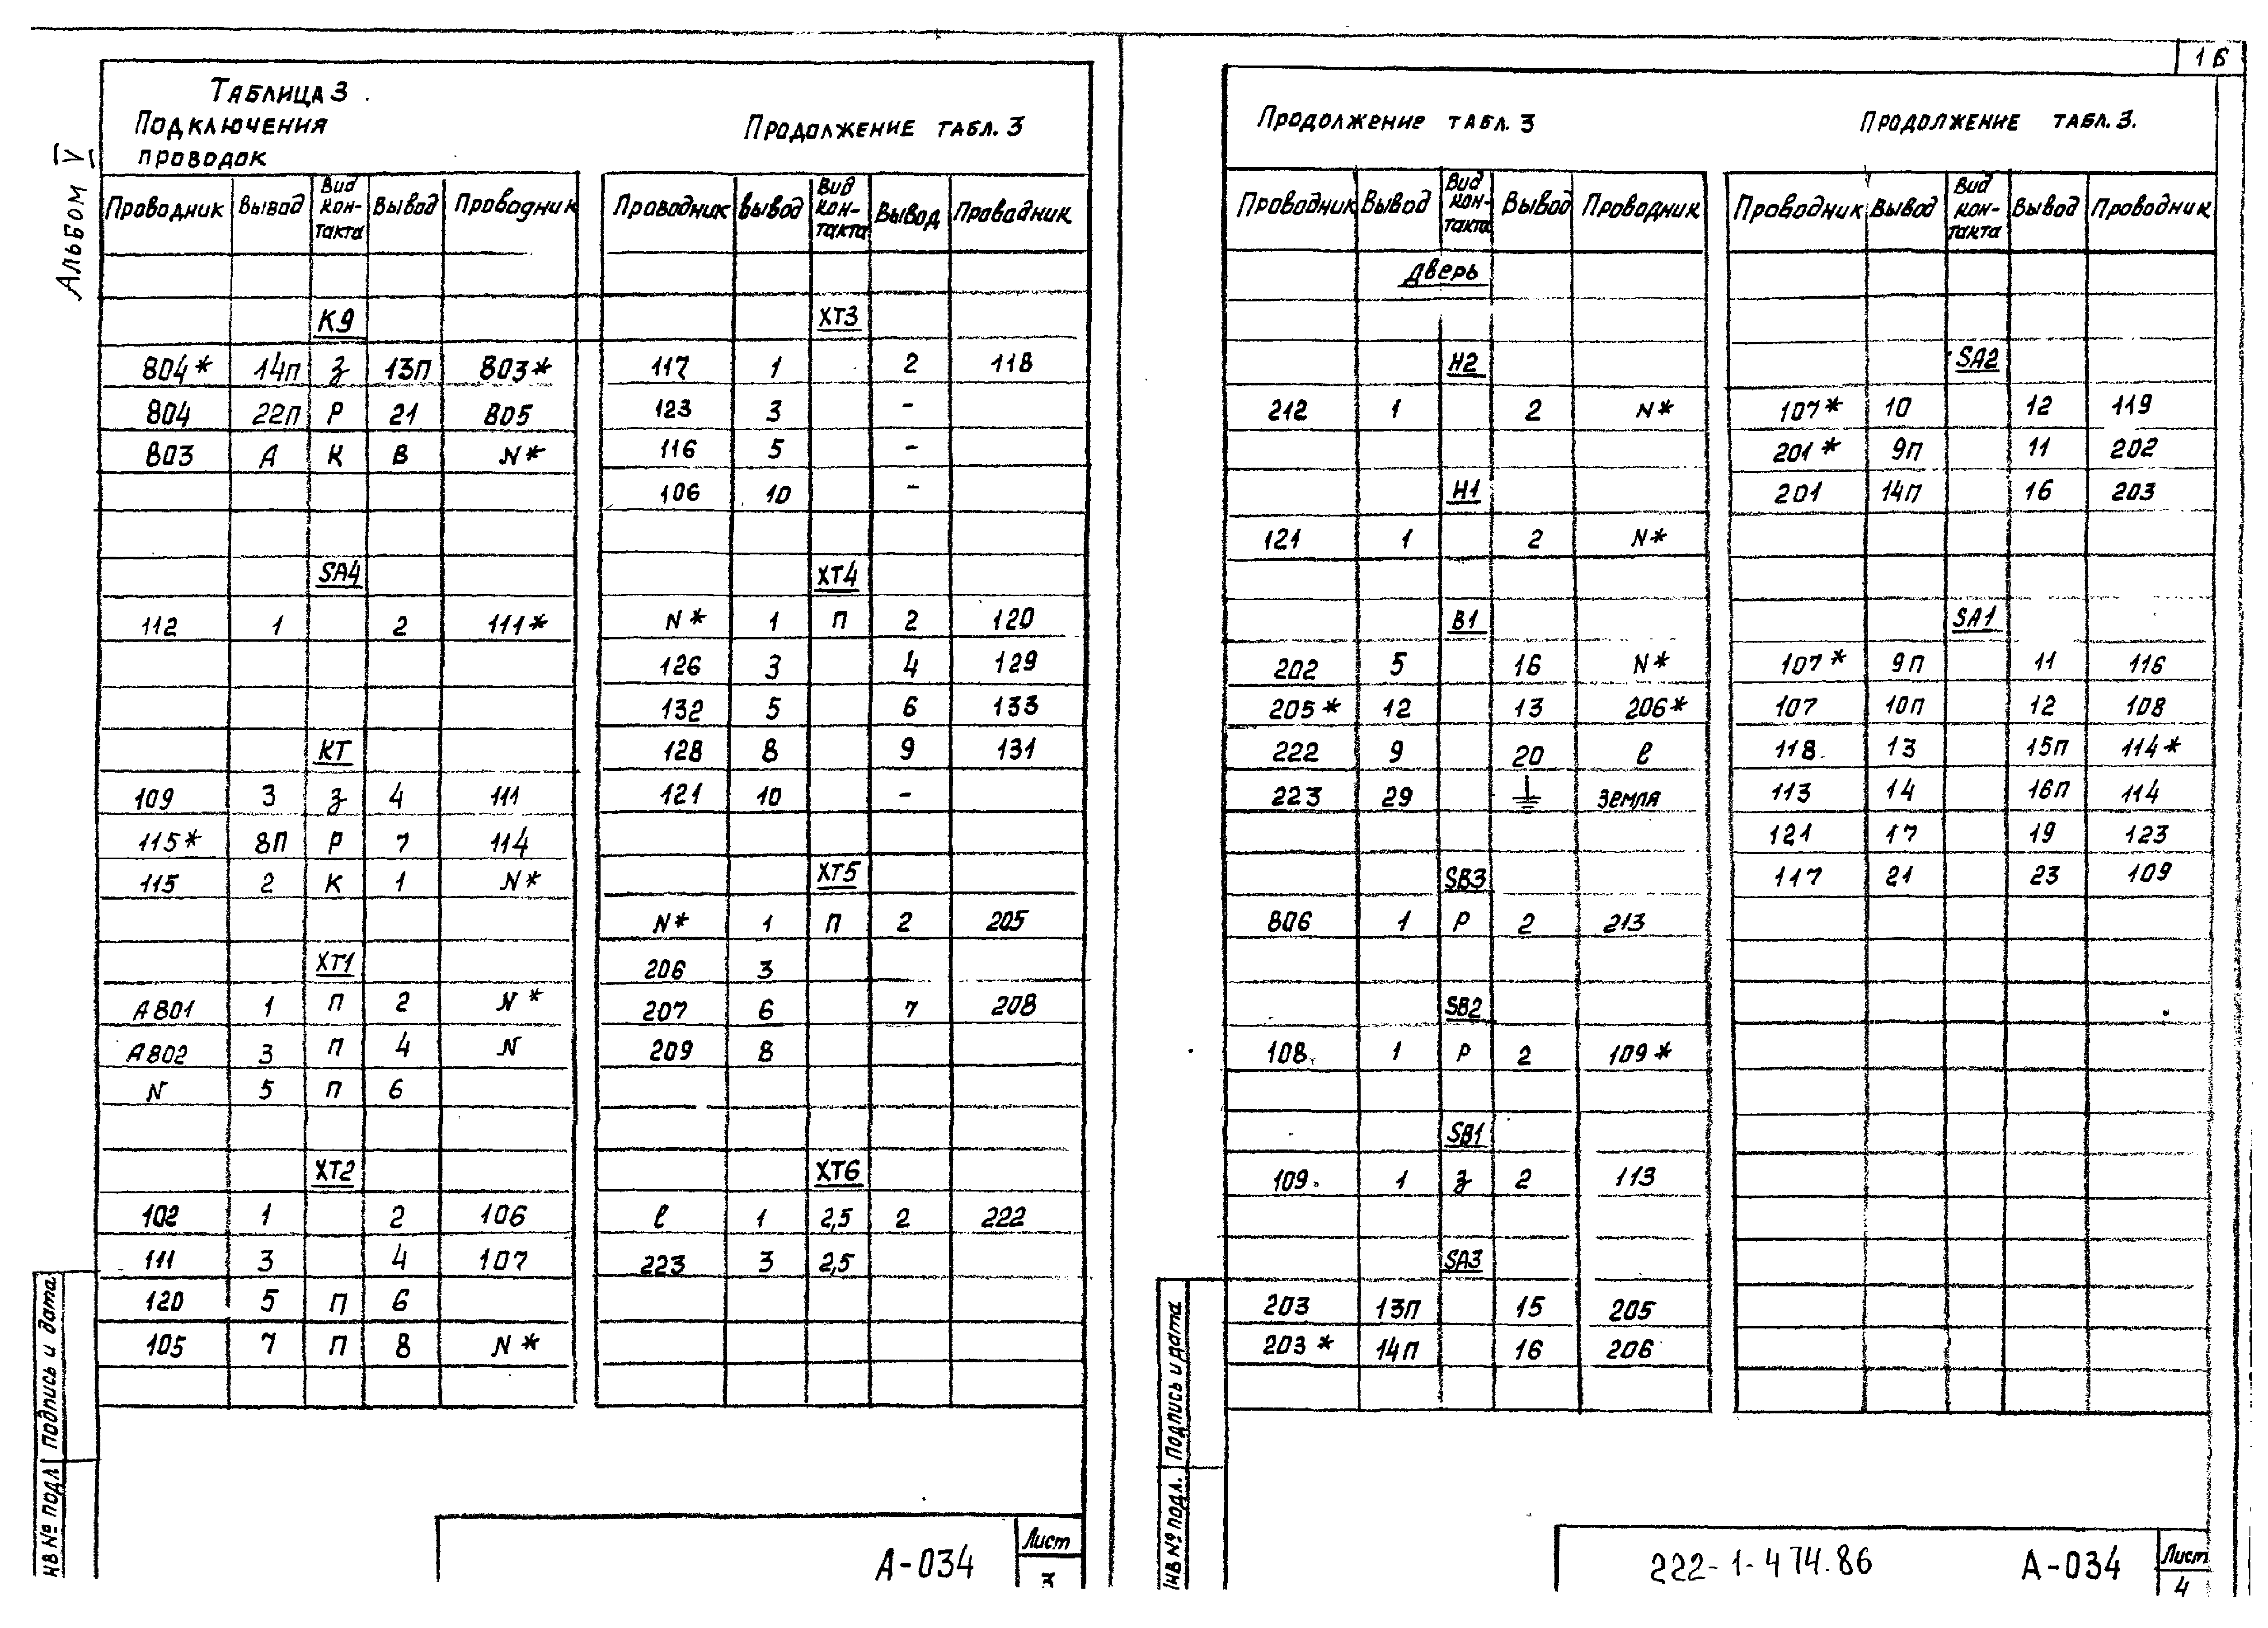 16
Альбом V
Таблица 3
Подключения
проводок
Проводник Вывод Вид кон-такта Вывод Проводник
К9
804* 14п з 13п 803*
804 22п Р 21 805
803 А К В N*
SA4
112 1 2 111*
КТ
109 3 з 4 111
115* 8п Р 7 114
115 2 К 1 N*
XT1
А801 1 п 2 N*
А802 3 п 4 N
N 5 п 6
XT2
102 1 2 106
111 3 4 107
120 5 п 6
105 7 п 8 N*
Продолжение табл. 3
Проводник Вывод Вид кон-такта Вывод Проводник
XT3
117 1 2 118
123 3 -
116 5 -
106 10 -
XT4
N* 1 п 2 120
126 3 4 129
132 5 6 133
128 8 9 131
121 10 -
XT5
N* 1 п 2 205
206 3
207 6 7 208
209 8
XT6
ℓ 1 2,5 2 222
223 3 2,5
А-034
Лист
3
Подпись и дата
нв № подл
Продолжение табл. 3
Проводник Вывод Вид кон-такта Вывод Проводник
Дверь
Н2
212 1 2 N*
Н1
121 1 2 N*
В1
202 5 16 N*
205* 12 13 206*
222 9 20 ℓ
223 29 ⏚ земля
SB3
806 1 Р 2 213
SB2
108 1 Р 2 109*
SB1
109 1 з 2 113
SA3
203 13п 15 205
203* 14п 16 206
Продолжение табл. 3.
Проводник Вывод Вид кон-такта Вывод Проводник
SA2
107* 10 12 119
201* 9п 11 202
201 14п 16 203
SA1
107* 9п 11 116
107 10п 12 108
118 13 15п 114*
113 14 16п 114
121 17 19 123
117 21 23 109
222-1-474.86
А-034
Лист
4
Подпись и дата
нв № подл.